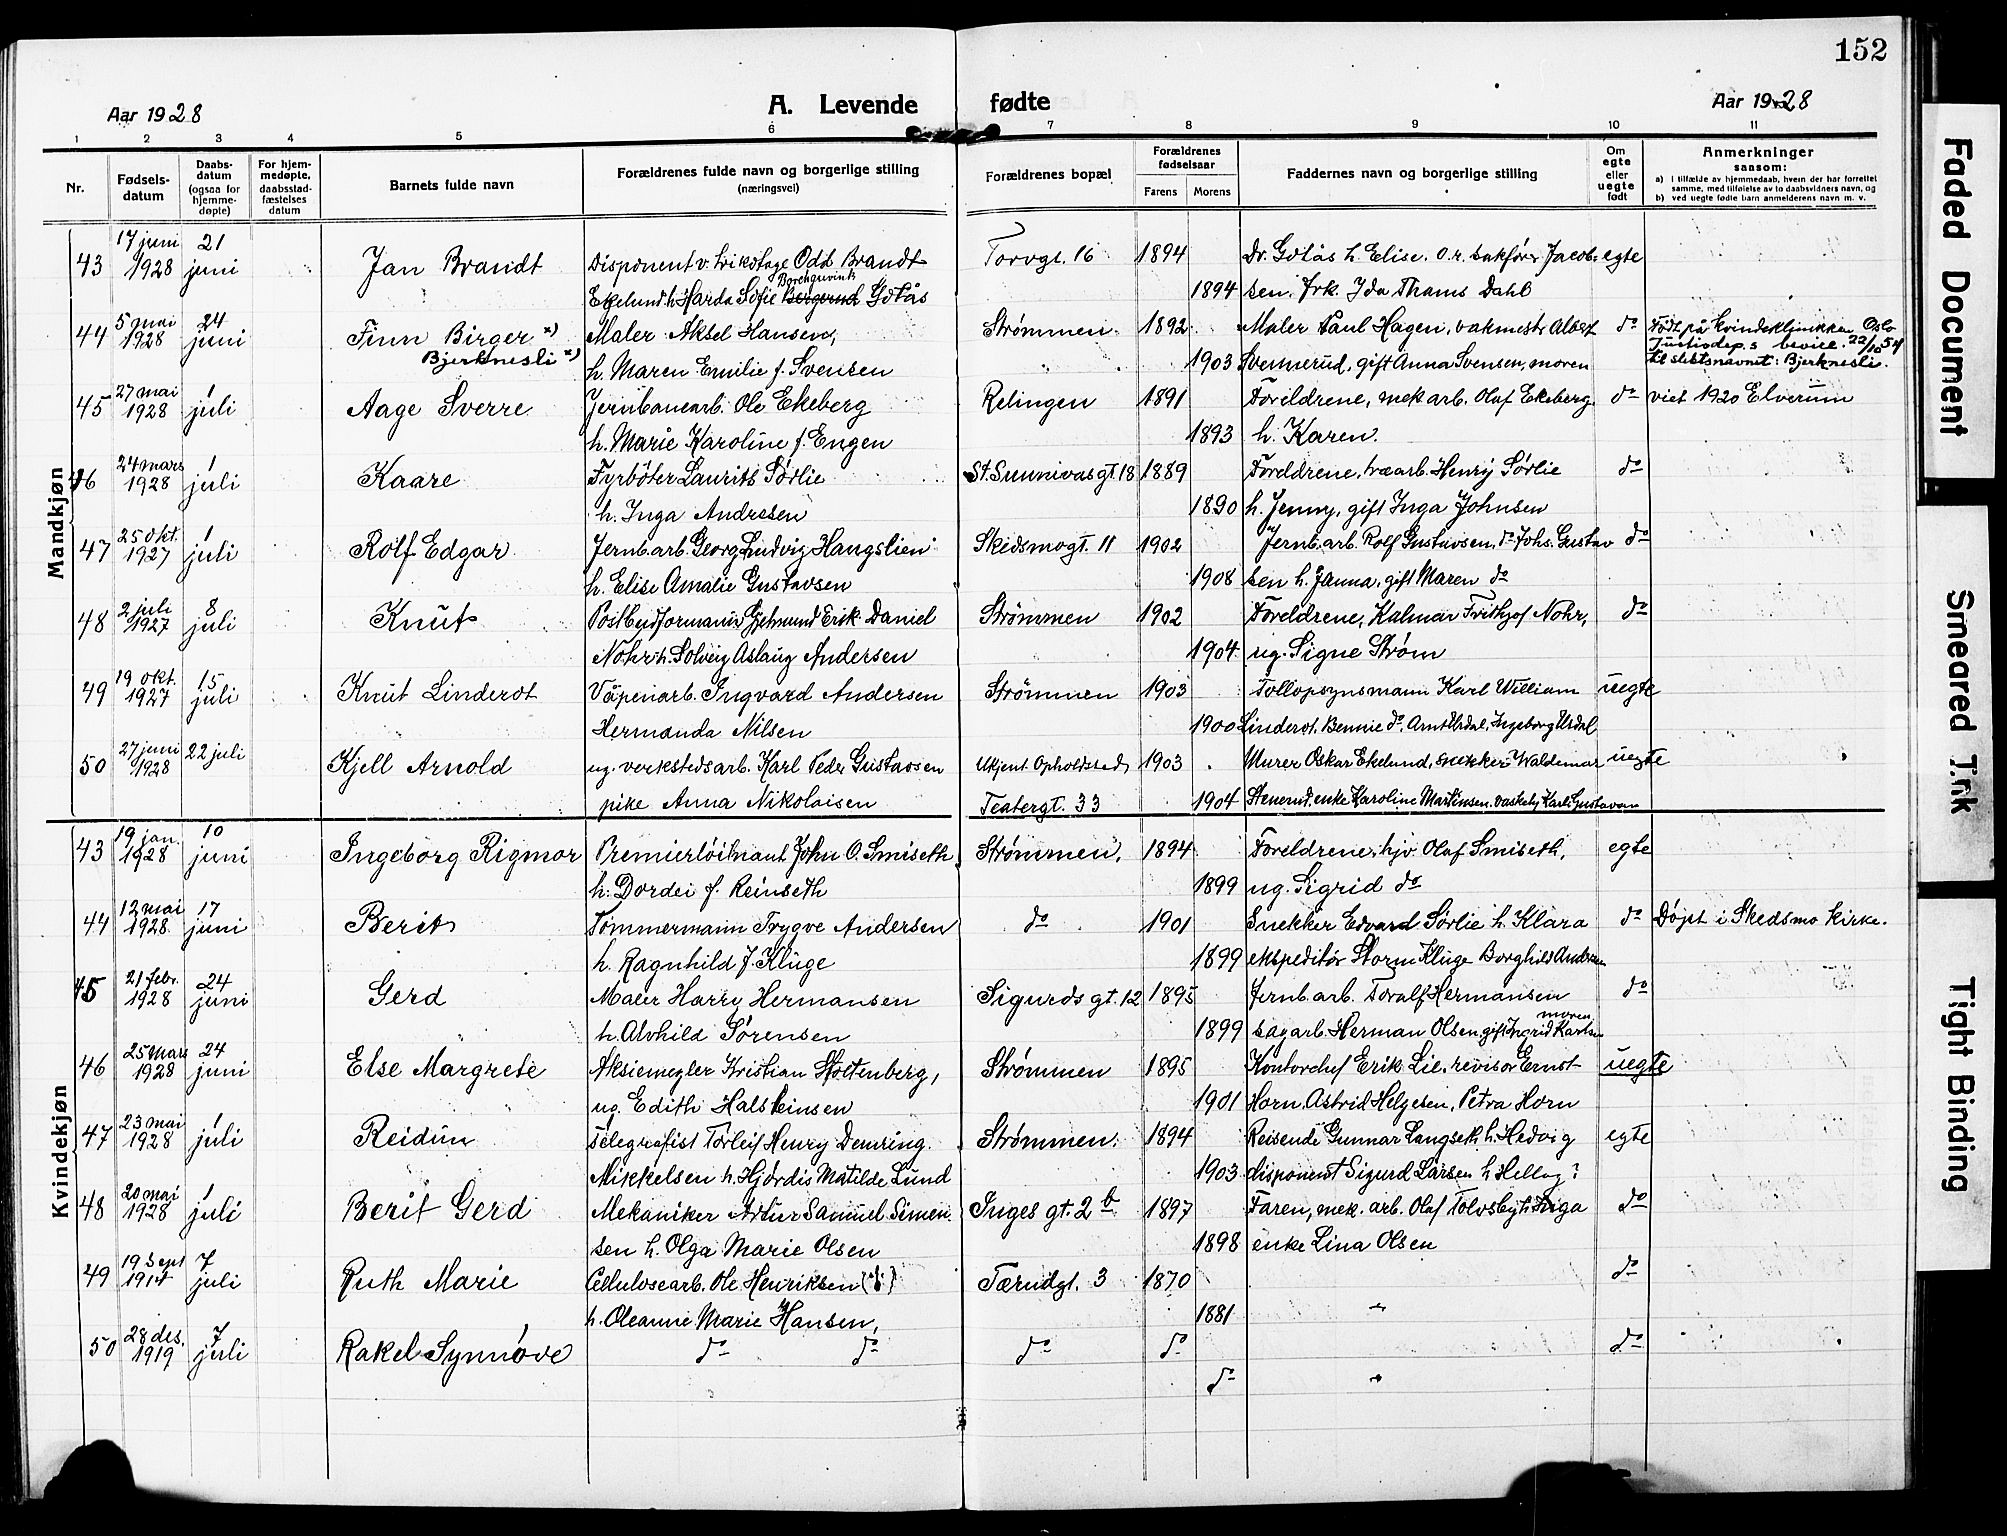 152
Aar 1928 A. Levende fødte Aar 1928
1 2 3 4 5 6 7 8 9 10 11
Nr. Fødsels-datum Daabs-datum (ogsaa for hjemme-døpte) For hjem-medøpte, daabsstad-fæstelses datum Barnets fulde navn Forældrenes fulde navn og borgerlige stilling (næringsvei) Forældrenes bopæl Forældrenes fødselsaar Farens Morens Faddernes navn og borgerlige stilling Om egte eller uegte født Anmerkninger saasom: a) i tilfælde av hjemmedaab, hvem der har forrettet samme, med tilføielse av to daabsvidners navn, og b) ved uegte fødte barn anmelderens navn m. v.
Mandkjøn
43 17 juni 1928 21 juni Jan Brandt Disponent v. Odd Brandt Torvgt. 16 1894 Dr. Gotås h. Elise. O.r. bokfører Jacob- egte
Ekelund h. Harda Sofie Borchgrevink Gotås 1894 sen. frk. Ida Thams Dahl
44 5 mai 1928 24 juni Finn Birger x) Maler Aksel Hansen, Strømmen 1892 Maler Paul Hagen, vakmestr. Albert do Født på kvindeklinikken Oslo
Bjerknesli x) h. Maren Emilie f. Svensen 1903 Svennerud, gift Anna Svensen, moren Justisdep.s bevill. 22/10 54 til slektsnavnet: Bjerknesli.
45 27 mai 1928 1 juli Aage Sverre Jernbanearb. Ole Ekeberg Relingen 1891 Foreldrene, mek arb. Olaf Ekeberg. do viet 1920 Elverum
h. Marie Karoline f. Engen 1893 h. Karen.
46 24 mars 1928 1 juli Kaare Fyrbøter Laurits Sørlie St. Sunnivas gt. 18 1889 Foreldrene, træarb. Henry Sørlie do
h. Inga Andresen 1890 h. Jenny, gift Inga Johnsen
47 25 okt. 1927 1 juli Rolf Edgar Jernb. arb. Georg Ludvig Haugslien Skedsmogt. 11 1902 Jernb. arb. Rolf Gustavsen, do Johs. Gustav do
h. Elise Amalie Gustavsen 1908 sen h. Janna, gift Maren do
48 2 juli 1927 8 juli Knut Postbudformann Gjetmund Erik Daniel Strømmen 1902 Foreldrene, Kalmar Frithjof Nohr, do
Nohr h. Solveig Aslaug Andersen 1904 ug. Signe Strøm
49 19 okt. 1927 15 juli Knut Linderot Våpenarb. Ingvard Andersen Strømmen 1903 Tollopsynsmann Karl William uegte
Hermanda Nilsen 1900 Linderot, Bennie do, Arnt Urdal, Ingeborg Urdal
50 27 juni 1928 22 juli Kjell Arnold ug. verkstedsarb. Karl Peder Gustavsen Ukjent Opholdssted 1903 Murer Oskar Ekelund, snekker Waldemar uegte
pike Anna Nikolaisen Teatergt. 33 1904 Stenerud, enke Karoline Martinsen Karli Gustavsen
Kvindekjøn
43 19 jan. 1928 10 juni Ingeborg Rigmor Premierløitnant John O. Smiseth Strømmen, 1894 Foreldrene, hjv. Olaf Smiseth, egte
h. Dordei f. Reinseth 1899 ug. Sigrid do
44 12 mai 1928 17 juni Berit Tømmermann Trygve Andersen do 1901 Snekker Edvard Sørlie h. Klara do Døpt i Skedsmo kirke.
h. Ragnhild J. Kluge 1899 ekspeditør Storm Kluge Borghild Andersen
45 21 febr. 1928 24 juni Gerd Maler Harry Hermansen Sigurds gt. 12 1895 Jernb. arb. Toralf Hermansen do
h. Alvhild Sørensen 1899 sagarb. Herman Olsen, gift Ingrid Karlsen moren
46 25 mars 1928 24 juni Else Margrete Aksiemegler Kristian Stoltenberg, Strømmen 1895 Kontorchef Erik Lie, revisor Ernst uegte
ug. Edith Halsteinsen 1901 Horn, Astrid Helgesen, Petra Horn
47 23 mai 1928 1 juli Reidun Telegrafist Torleif Henry Demring. Strømmen. 1894 Reisende Gunnar Langseth h. Hedvig egte
Mikkelsen h. Hjørdis Matilde Lund 1903 disponent Sigurd Larsen h. Hellog?
48 20 mai 1928 1 juli Berit Gerd Mekaniker Artur Samuel Simen Inges gt. 2 b 1897 Faren, mek. arb. Olaf Tolvsby h. Inga do
sen h. Olga Marie Olsen 1898 enke Lina Olsen
49 19 sept 1914 7 juli Ruth Marie Cellulosearb. Ole Henriksen (†) Tærudgt. 3 1870 do
h. Oleanne Marie Hansen, 1881 "
50 28 des. 1919 7 juli Rakel Synnøve do do do do do
do "
Faded Document
Smeared Ink
Tight Binding